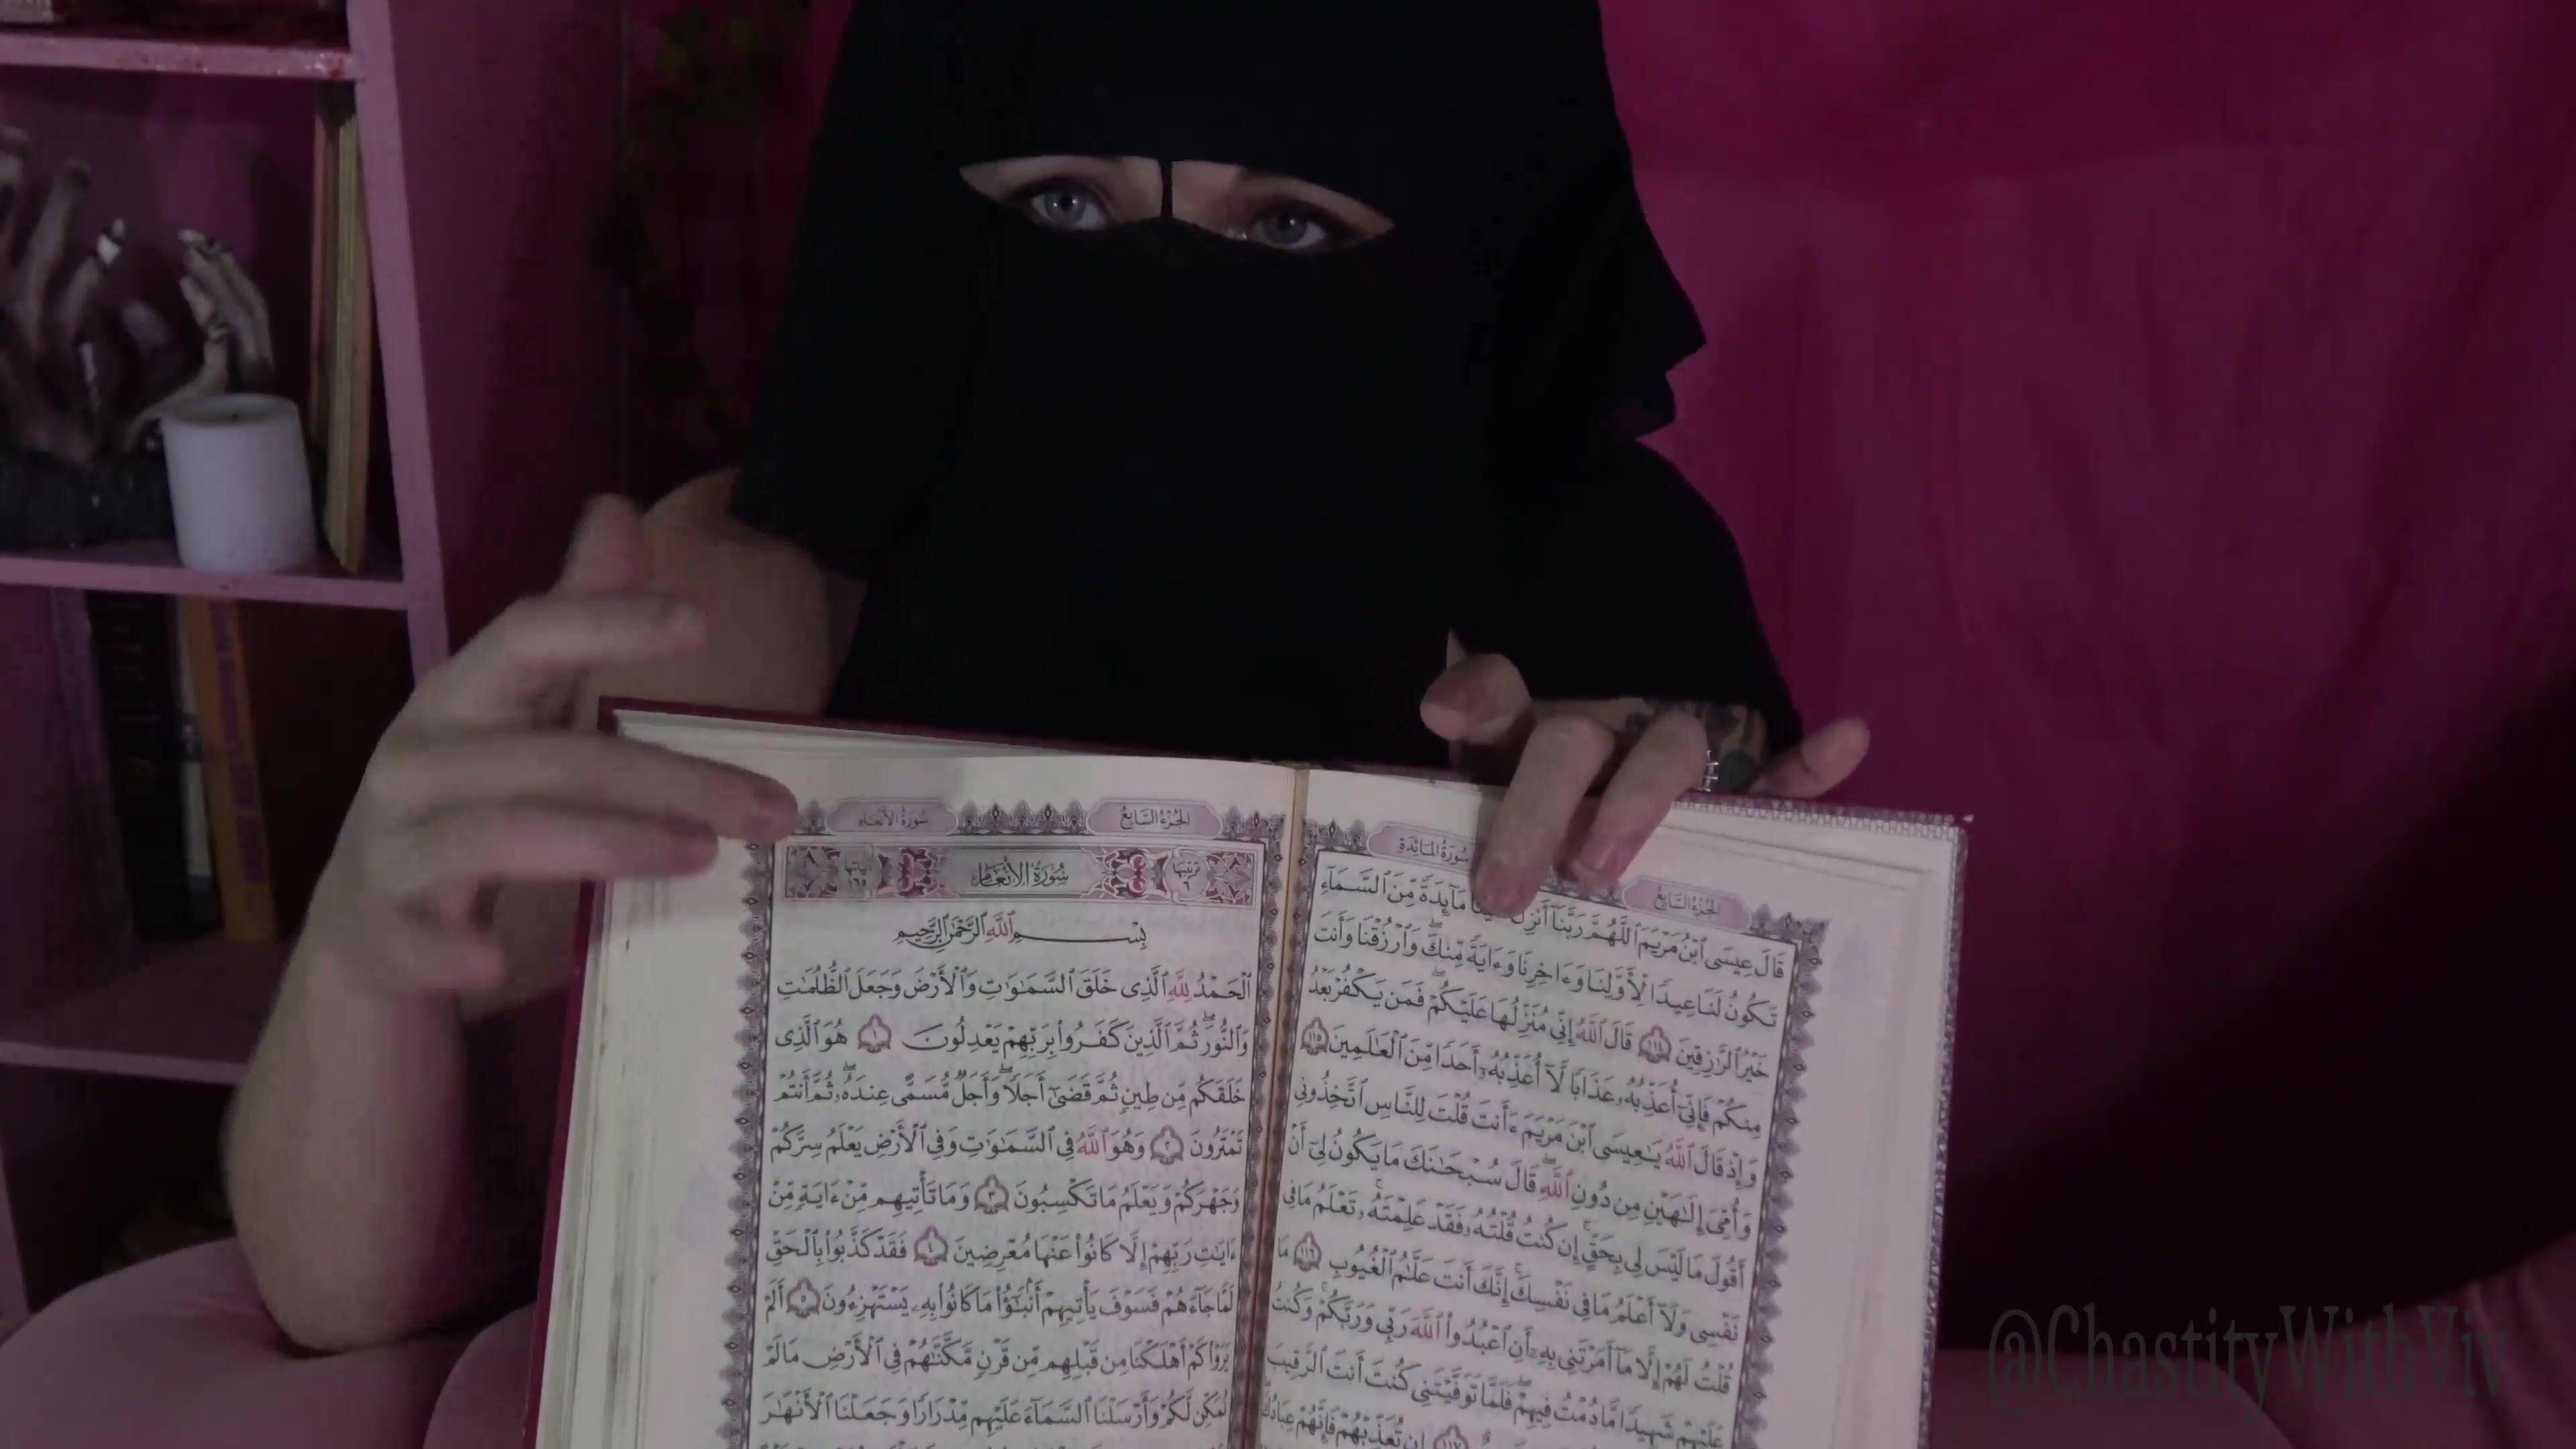 الجزء السابع
سورة المائدة
قَالَ عِيسَى ٱبْنُ مَرْيَمَ ٱللَّهُمَّ رَبَّنَآ أَنزِلْ مَآئِدَةً مِّنَ ٱلسَّمَآءِ
تَكُونُ لَنَا عِيدًا لِّأَوَّلِنَا وَءَاخِرِنَا وَءَايَةً مِّنكَ ۖ وَٱرْزُقْنَا وَأَنتَ
خَيْرُ ٱلرَّٰزِقِينَ ١١٤ قَالَ ٱللَّهُ إِنِّى مُنَزِّلُهَا عَلَيْكُمْ ۖ فَمَن يَكْفُرْ بَعْدُ
مِنكُمْ فَإِنِّىٓ أُعَذِّبُهُۥ عَذَابًا لَّآ أُعَذِّبُهُۥٓ أَحَدًا مِّنَ ٱلْعَٰلَمِينَ ١١٥
وَإِذْ قَالَ ٱللَّهُ يَٰعِيسَى ٱبْنَ مَرْيَمَ ءَأَنتَ قُلْتَ لِلنَّاسِ ٱتَّخِذُونِى
وَأُمِّىَ إِلَٰهَيْنِ مِن دُونِ ٱللَّهِ ۖ قَالَ سُبْحَٰنَكَ مَا يَكُونُ لِىٓ أَنْ
أَقُولَ مَا لَيْسَ لِى بِحَقٍّ ۚ إِن كُنتُ قُلْتُهُۥ فَقَدْ عَلِمْتَهُۥ ۚ تَعْلَمُ مَا فِى
نَفْسِى وَلَآ أَعْلَمُ مَا فِى نَفْسِكَ ۚ إِنَّكَ أَنتَ عَلَّٰمُ ٱلْغُيُوبِ ١١٦ مَا
قُلْتُ لَهُمْ إِلَّا مَآ أَمَرْتَنِى بِهِۦٓ أَنِ ٱعْبُدُوا۟ ٱللَّهَ رَبِّى وَرَبَّكُمْ ۚ وَكُنتُ
عَلَيْهِمْ شَهِيدًا مَّا دُمْتُ فِيهِمْ ۖ فَلَمَّا تَوَفَّيْتَنِى كُنتَ أَنتَ ٱلرَّقِيبَ
١١٧ إِن تُعَذِّبْهُمْ فَإِنَّهُمْ عِبَادُكَ
الجزء السابع
سورة الأنعام
ترتيبها ٦
سورة الأنعام
آياتها ١٦٥
بِسْمِ ٱللَّهِ ٱلرَّحْمَٰنِ ٱلرَّحِيمِ
ٱلْحَمْدُ لِلَّهِ ٱلَّذِى خَلَقَ ٱلسَّمَٰوَٰتِ وَٱلْأَرْضَ وَجَعَلَ ٱلظُّلُمَٰتِ
وَٱلنُّورَ ۖ ثُمَّ ٱلَّذِينَ كَفَرُوا۟ بِرَبِّهِمْ يَعْدِلُونَ ١ هُوَ ٱلَّذِى
خَلَقَكُم مِّن طِينٍ ثُمَّ قَضَىٰٓ أَجَلًا ۖ وَأَجَلٌ مُّسَمًّى عِندَهُۥ ۖ ثُمَّ أَنتُمْ
تَمْتَرُونَ ٢ وَهُوَ ٱللَّهُ فِى ٱلسَّمَٰوَٰتِ وَفِى ٱلْأَرْضِ ۖ يَعْلَمُ سِرَّكُمْ
وَجَهْرَكُمْ وَيَعْلَمُ مَا تَكْسِبُونَ ٣ وَمَا تَأْتِيهِم مِّنْ ءَايَةٍ مِّنْ
ءَايَٰتِ رَبِّهِمْ إِلَّا كَانُوا۟ عَنْهَا مُعْرِضِينَ ٤ فَقَدْ كَذَّبُوا۟ بِٱلْحَقِّ
لَمَّا جَآءَهُمْ ۖ فَسَوْفَ يَأْتِيهِمْ أَنۢبَٰٓؤُا۟ مَا كَانُوا۟ بِهِۦ يَسْتَهْزِءُونَ ٥ أَلَمْ
يَرَوْا۟ كَمْ أَهْلَكْنَا مِن قَبْلِهِم مِّن قَرْنٍ مَّكَّنَّٰهُمْ فِى ٱلْأَرْضِ مَا لَمْ
نُمَكِّن لَّكُمْ وَأَرْسَلْنَا ٱلسَّمَآءَ عَلَيْهِم مِّدْرَارًا وَجَعَلْنَا ٱلْأَنْهَٰرَ
@ChastityWithViv